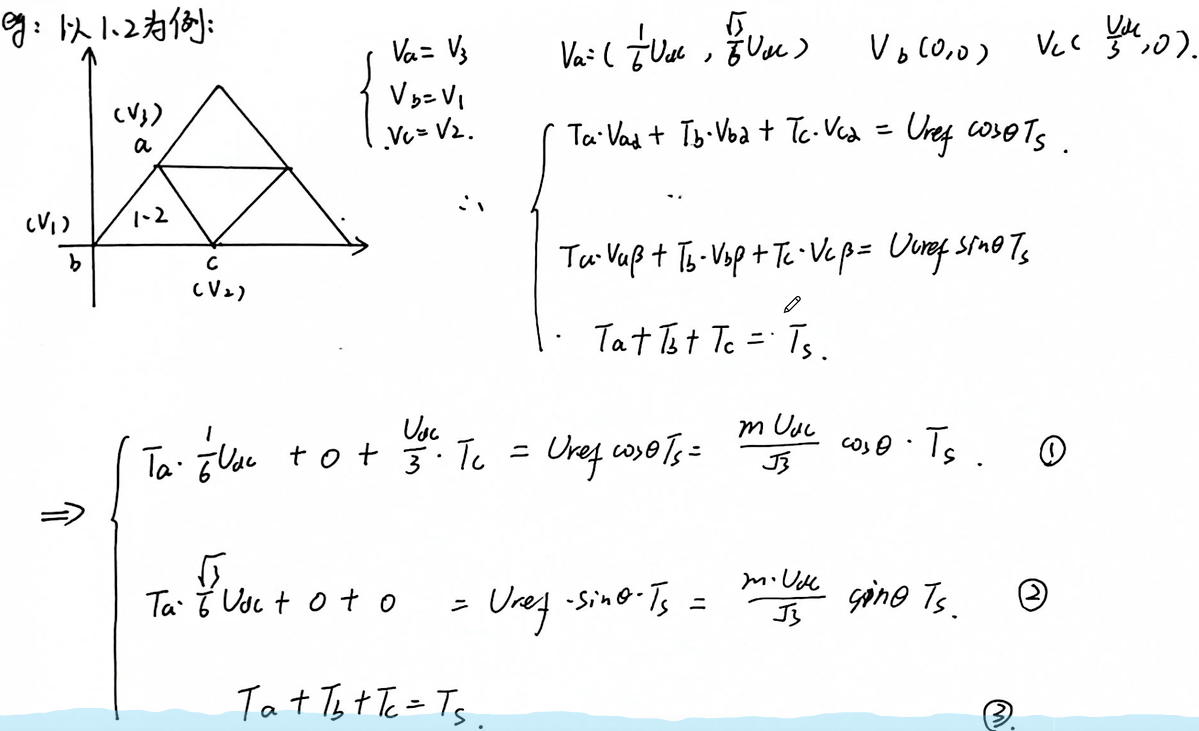 eg: 以1.2为例:
(V3)
a
(V1)
1-2
b
c
(V2)
Va = V3
Vb = V1
Vc = V2.
Va=( 1/6 Udc , √3/6 Udc ) Vb (0,0) Vc ( Udc/3 , 0 ).
∴ Ta·Vaα + Tb·Vbα + Tc·Vcα = Uref cosθ Ts .
Ta·Vaβ + Tb·Vbβ + Tc·Vcβ = Uref sinθ Ts
Ta + Tb + Tc = Ts .
⇒ Ta· 1/6 Udc + 0 + Udc/3 · Tc = Uref cosθ Ts = m Udc/√3 cosθ · Ts . ①
Ta· √3/6 Udc + 0 + 0 = Uref ·sinθ·Ts = m·Udc/√3 sinθ Ts. ②
Ta + Tb + Tc = Ts . ③